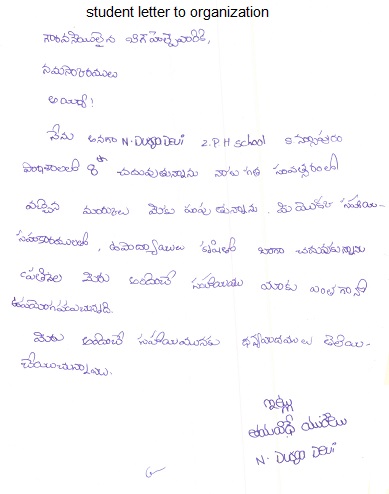 student letter to organization
గౌరవనీయులైన
నమస్కారములు
అయ్యా!
నేను అనగా N. Durga Devi Z.P.H School
పాఠశాలలో 8th చదువుతున్నాను నాకు గత సంవత్సరంలో
వచ్చిన మార్కులు మీకు పంపుతున్నాను. మీ యొక్క సహాయ-
సహకారములతో, ఉపాధ్యాయులు కృషితో బాగా చదువుకున్నాను
ప్రతినెల మీరు అందించే సహాయము నాకు ఎంతగానో
ఉపయోగపడుచున్నది.
మీరు అందించే సహాయమునకు ధన్యవాదములు తెలియ-
చేయుచున్నాను.
ఇట్లు
N. Durga Devi